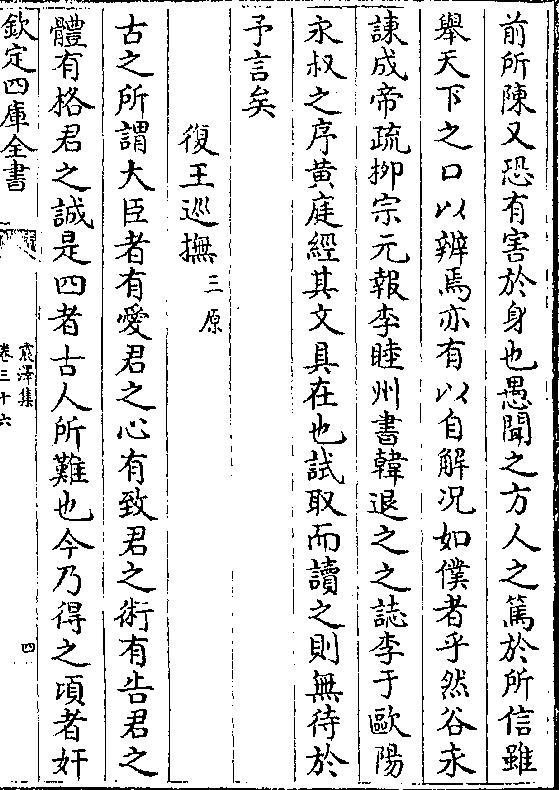 前所陳又恐有害於身也愚聞之方人之篤於所信雖
舉天下之口以辨焉亦有以自解况如僕者乎然谷永
諫成帝疏柳宗元報李睦州書韓退之之誌李于歐陽
永叔之序黄庭經其文具在也試取而讀之則無待於
予言矣
復王巡撫三原
古之所謂大臣者有愛君之心有致君之術有告君之
體有格君之誠是四者古人所難也今乃得之頃者奸
欽定四庫全書
震澤集
卷三十六
四